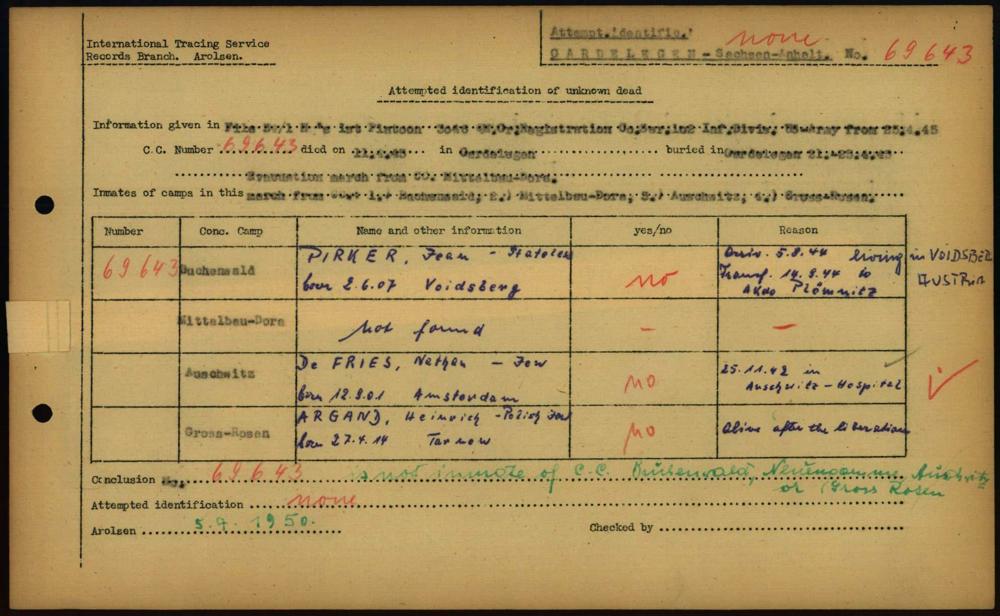 International Tracing Service
Records Branch. Arolsen.
Attempt.'dentific.' none
GARDELEGEN - Sachsen-Anhalt. No. 69643
Attempted identification of unknown dead
Information given in File 1st Platoon Registration 102 Inf.Divis. US-Army from 25.4.45
C.C. Number 69643 died on 11.4.45 in Gardelegen buried in Gardelegen 21.-25.4.45
Evacuation march from CC. Mittelbau-Dora.
Inmates of camps in this march from 1.) Buchenwald; 2.) Mittelbau-Dora; 3.) Auschwitz; 4.) Gross-Rosen.
Number Conc. Camp Name and other information yes/no Reason
69643 Buchenwald PIRKER, Jean - Stateless no Arriv. 5.8.44 living in VOIDSBERG
born 2.6.07 Voidsberg Transf. 14.9.44 to AUSTRIA
AKdo Plömnitz
Mittelbau-Dora not found - -
Auschwitz De FRIES, Nathan - Jew no 25.11.42 in
born 12.9.01 Amsterdam Auschwitz-Hospital
Gross-Rosen ARGAND, Heinrich - Polish Jew no Alive after the liberation
born 27.4.14 Tarnow
Conclusion No. 69643 is not inmate of C.C. Buchenwald, Neuengamme, Auschwitz
or Gross Rosen
Attempted identification none
Arolsen 5.9.1950. Checked by